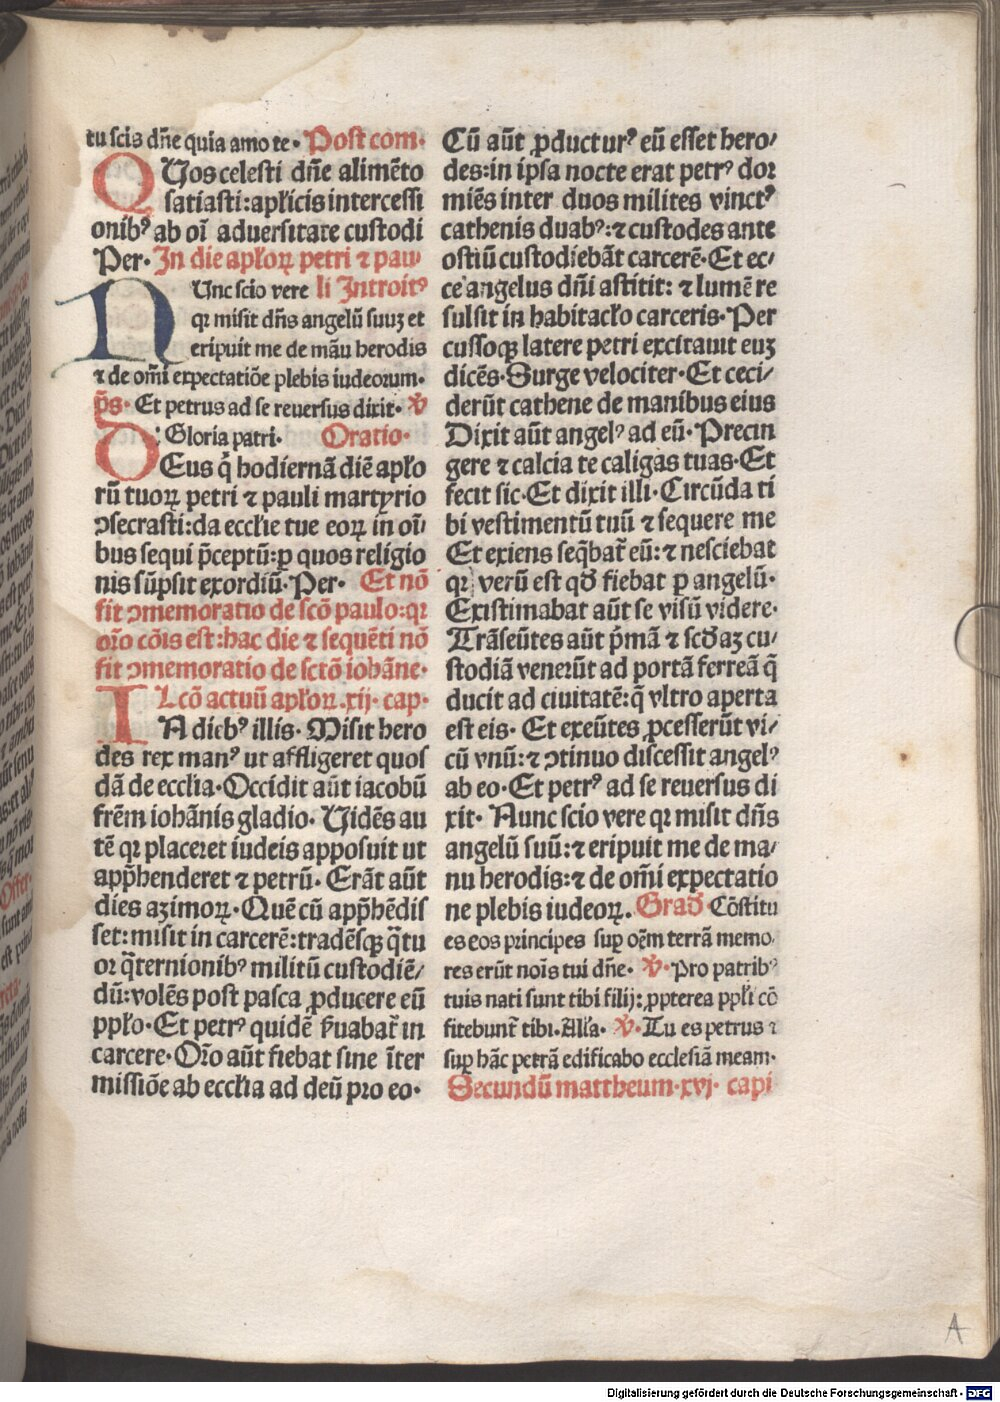 tu scis dñe quia amo te· Post com·
QUos celesti dñe alimēto
satiasti: apl'icis intercessi
onibꝰ ab oī aduersitate custodi
Per· In die apl'oꝝ petri ⁊ pau
NUnc scio vere li Introitꝰ
qꝛ misit dñs angelū suuꝫ et
eripuit me de māu herodis
⁊ de om̄i expectatiōe plebis iudeorum·
p̄s· Et petrus ad se reuersus dixit· ℣
: Gloria patri· Oratio·
DEus q̇ hodiernā diē apl'o
rū tuoꝝ petri ⁊ pauli martyrio
ꝯsecrasti: da eccl'ie tue eoꝝ in oī/
bus sequi p̄ceptū: ꝑ quos religio
nis sūpsit exordiū· Per· Et nō
fit ꝯmemoratio de scō paulo: qꝛ
or̄o cōis est: hac die ⁊ sequēti nō
fit ꝯmemoratio de sctō iohāne·
Lcō actuū apl'oꝝ· xij· cap·
IN diebꝰ illis· Misit hero
des rex manꝰ ut affligeret quos
dā de eccl'ia· Occidit aūt iacobū
frēm iohānis gladio· Uidēs au
tē qꝛ placeret iudeis apposuit ut
app̄henderet ⁊ petrū· Erāt aūt
dies azimoꝝ· Quē cū app̄hēdis
set: misit in carcerē: tradēsqꝫ q̄tu
or q̄ternionibꝰ militū custodiē/
dū: volēs post pasca ꝓducere eū
ppl'o· Et petrꝰ quidē s̄uabat᷑ in
carcere· Or̄o aūt fiebat sine īter
missiōe ab eccl'ia ad deū pro eo·
Cū aūt ꝓducturꝰ eū esset hero/
des: in ipsa nocte erat petrꝰ dor
miēs inter duos milites vinctꝰ
cathenis duabꝰ: ⁊ custodes ante
ostiū custodiebāt carcerē· Et ec/
ce angelus dñi astitit: ⁊ lumē re
fulsit in habitacl'o carceris· Per
cussoqꝫ latere petri excitauit euꝫ
dicēs· Surge velociter· Et ceci/
derūt cathene de manibus eius
Dixit aūt angelꝰ ad eū· Precin
gere ⁊ calcia te caligas tuas· Et
fecit sic· Et dixit illi· Circūda ti
bi vestimentū tuū ⁊ sequere me
Et exiens seq̄bat᷑ eū: ⁊ nesciebat
qꝛ verū est qď fiebat ꝑ angelū·
Existimabat aūt se visū videre·
Trāseūtes aūt p̄mā ⁊ scďaꝫ cu/
stodiā venerūt ad portā ferreā q̄
ducit ad ciuitatē: q̄ vltro aperta
est eis· Et exeūtes ꝓcesserūt vi/
cū vnū: ⁊ ꝯtinuo discessit angelꝰ
ab eo· Et petrꝰ ad se reuersus di
xit· Nunc scio vere qꝛ misit dñs
angelū suū: ⁊ eripuit me de ma/
nu herodis: ⁊ de om̄i expectatio
ne plebis iudeoꝝ. Grad' Cōstitu
es eos principes suꝑ oēm terrā memo
res erūt nōis tui dñe· ℣· Pro patribꝰ
tuis nati sunt tibi filij: ꝓpterea ppl'i cō
fitebunt᷑ tibi· All'a· ℣· Tu es petrus ⁊
suꝑ hāc petrā edificabo ecclesiā meam·
Secundū mattheum· xvj· capi
A
Digitalisierung gefördert durch die Deutsche Forschungsgemeinschaft · DFG